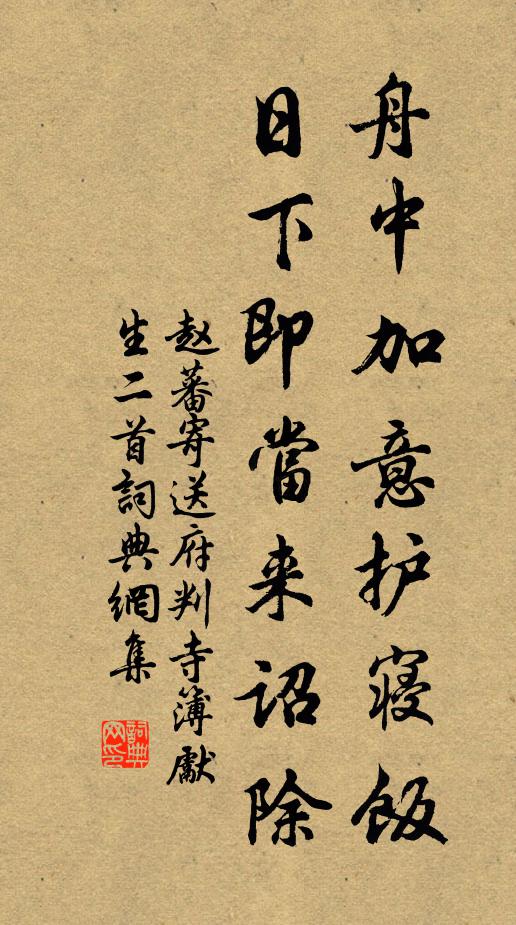 舟中加意护寝饭
日下即當来诏除
赵蕃寄送府判寺簿獻
生二首詞典網集
詞典网印